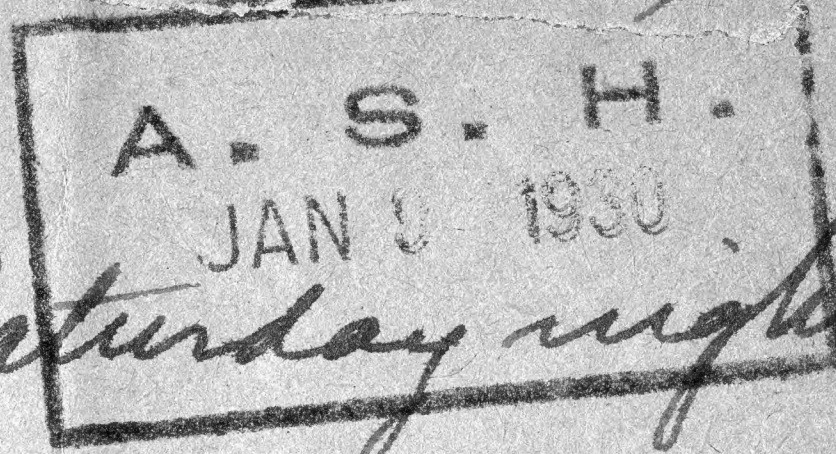 A. S. H.
JAN 9 1930
Saturday night